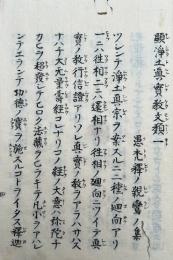 顯淨土真實教文類一
愚禿釋ノ親鸞ノ集
ツヽシテ淨土真宗ヲ案スルニ二種ノ廻向アリ
一ニハ往相二ニハ還相ナリ往相ノ廻向ニツイテ真
實ノ教行信證アリソレ真實ノ教ヲアラハサハ
ナハチ大无量壽經コレナリコノ經ノ大意ハ弥陀チ
カヒヲ超發シテヒロク法藏ヲヒラキテ凡小ヲアハレ
ンテエランテ功德ノ寶ヲ施スルコトヲイタス釋迦